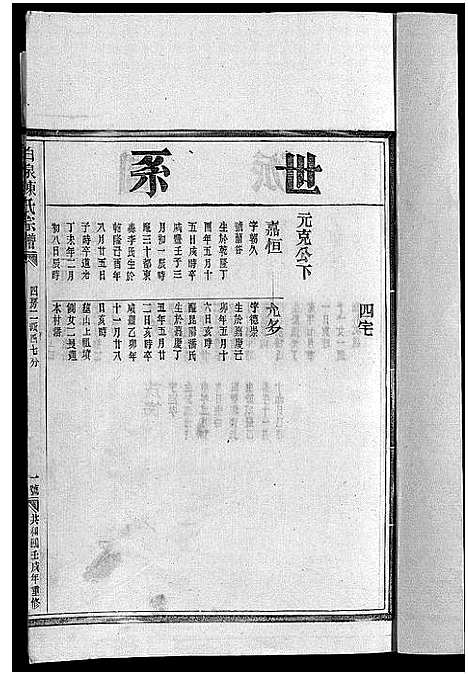 世系
四宅
元克公下
嘉恒
字朝久
號蘭谷
生於乾隆丁
酉年五月十
五日戌時卒
咸豐壬子三
月初一辰時
庵三十都東
秦李氏生於
乾隆己酉年
八月廿五日
子時卒道光
丁未年二月
初八日辰時
允多
字德崇
生於嘉慶己
卯年五月十
六日亥時
配昆陽潘氏
生於嘉慶丁
丑年五月廿
二日亥時卒
咸豐乙卯年
十一月廿八
日亥時
墓山上祖墳
側女二長適
木村潘
陳氏宗譜
四房一二派四七分
一號
共和國壬戌年重修